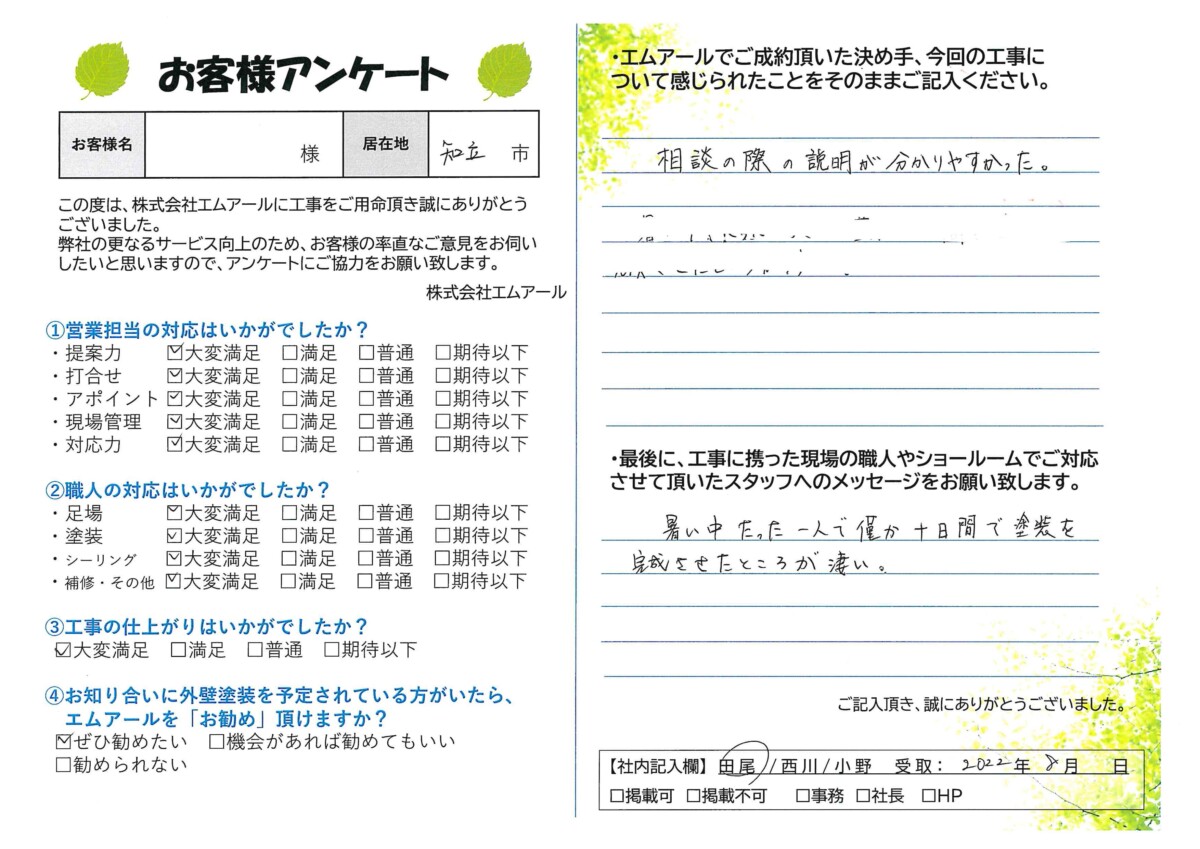 お客様アンケート
お客様名 様 居在地 知立 市
この度は、株式会社エムアールに工事をご用命頂き誠にありがとう
ございました。
弊社の更なるサービス向上のため、お客様の率直なご意見をお伺い
したいと思いますので、アンケートにご協力をお願い致します。
株式会社エムアール
①営業担当の対応はいかがでしたか？
・提案力 ☑大変満足 □満足 □普通 □期待以下
・打合せ ☑大変満足 □満足 □普通 □期待以下
・アポイント ☑大変満足 □満足 □普通 □期待以下
・現場管理 ☑大変満足 □満足 □普通 □期待以下
・対応力 ☑大変満足 □満足 □普通 □期待以下
②職人の対応はいかがでしたか？
・足場 ☑大変満足 □満足 □普通 □期待以下
・塗装 ☑大変満足 □満足 □普通 □期待以下
・シーリング ☑大変満足 □満足 □普通 □期待以下
・補修・その他 ☑大変満足 □満足 □普通 □期待以下
③工事の仕上がりはいかがでしたか？
☑大変満足 □満足 □普通 □期待以下
④お知り合いに外壁塗装を予定されている方がいたら、
エムアールを「お勧め」頂けますか？
☑ぜひ勧めたい □機会があれば勧めてもいい
□勧められない
・エムアールでご成約頂いた決め手、今回の工事に
ついて感じられたことをそのままご記入ください。
相談の際の説明が分かりやすかった。
・最後に、工事に携った現場の職人やショールームでご対応
させて頂いたスタッフへのメッセージをお願い致します。
暑い中たった一人で僅か十日間で塗装を
完成させたところが凄い。
ご記入頂き、誠にありがとうございました。
【社内記入欄】田尾/西川/小野 受取：2022年 8月 日
□掲載可 □掲載不可 □事務 □社長 □HP